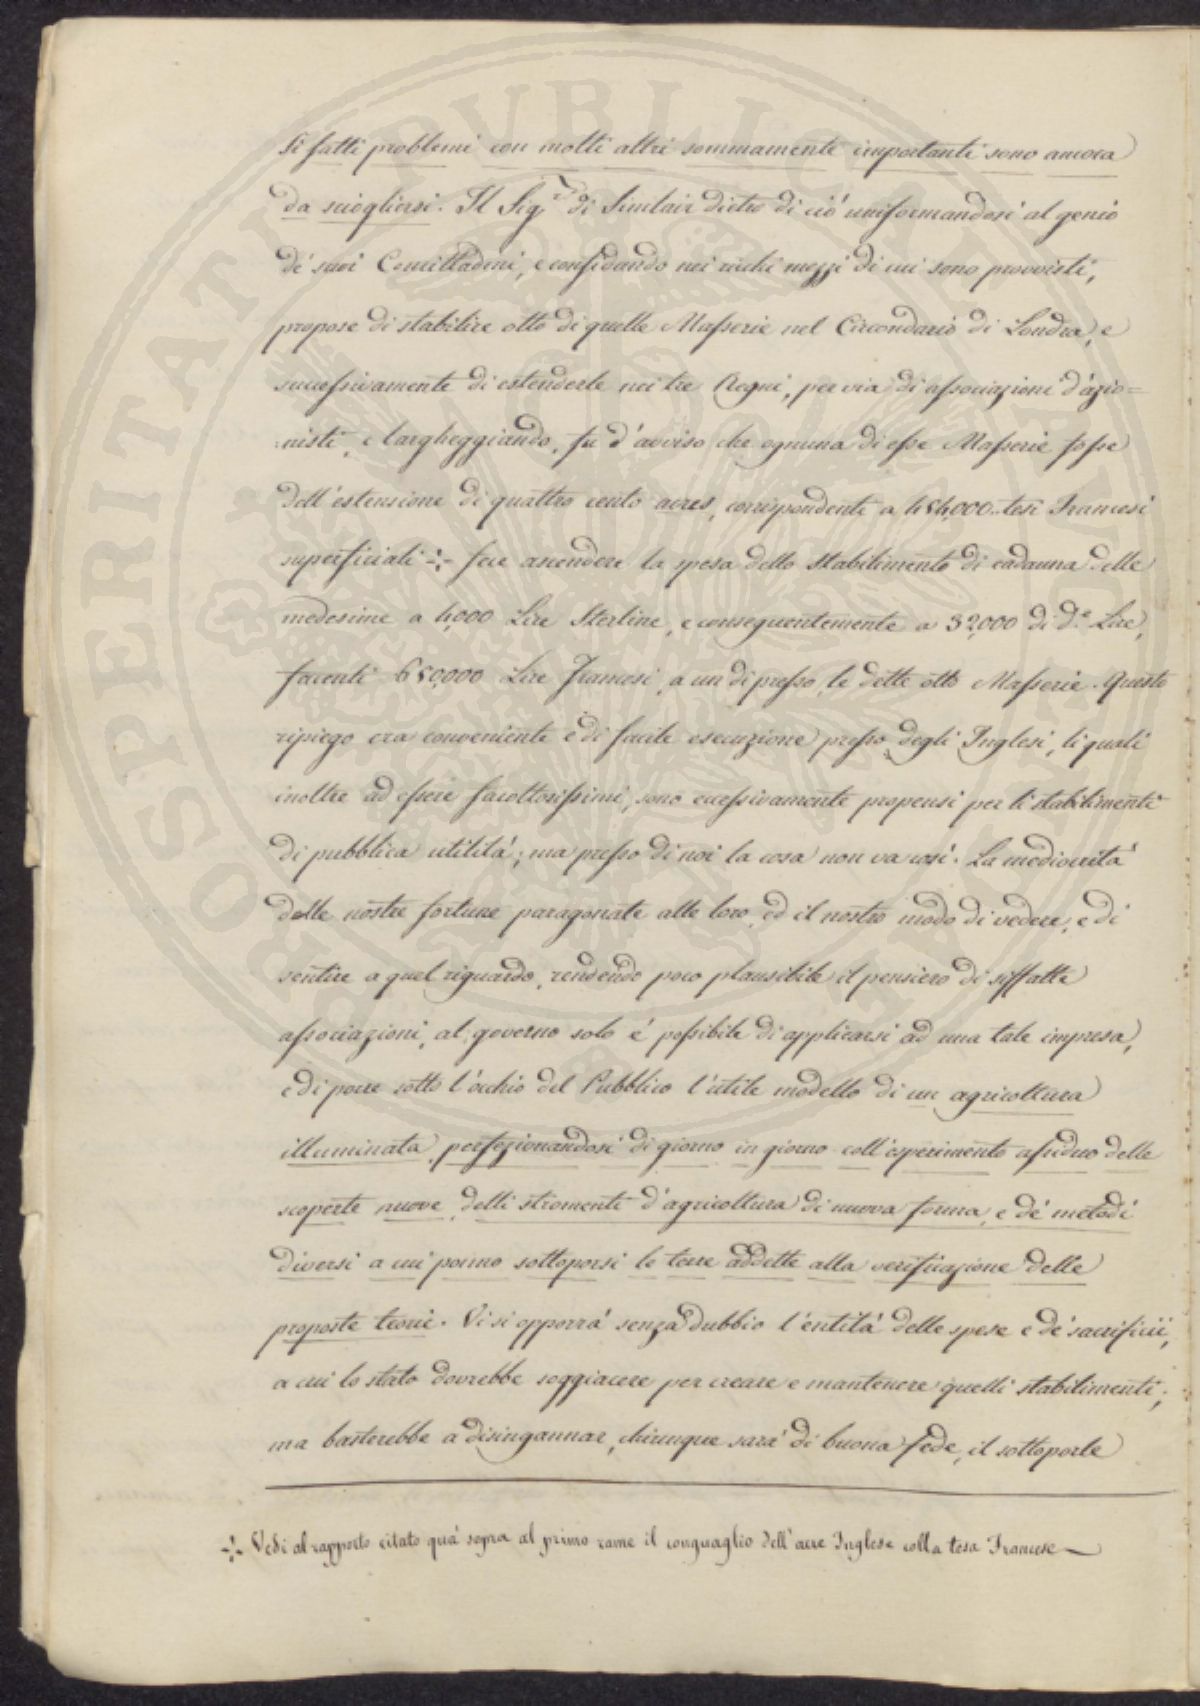 Si fatti problemi con molti altri sommamente importanti sono ancora
da sciogliersi. Il Sig.r di Sinclair dietro di ciò uniformandosi al genio
de' suoi Concittadini, e confidando nei ricchi mezzi di cui sono provvisti,
propose di stabilire otto di quelle Masserie nel Circondario di Londra, e
successivamente di estenderle nei tre Regni, per via di associazioni d'azio=
nisti, e largheggiando, fu d'avviso che ognuna di esse Masserie fosse
dell'estensione di quattro cento acres, corrispondente a 484,000 tese Francesi
superficiali ÷ fece ascendere la spesa dello stabilimento di cadauna delle
medesime a 4,000 Lire Sterline, e conseguentemente a 32,000 di d.e Lire,
facenti 650,000 Lire Francesi, a un di presso, le dette otto Masserie. Questo
ripiego era conveniente e di facile esecuzione presso degli Inglesi, li quali
inoltre ad essere facoltosissimi, sono eccessivamente propensi per li stabilimenti
di pubblica utilità; ma presso di noi la cosa non va così. La mediocrità
delle nostre fortune paragonate alle loro, ed il nostro modo di vedere, e di
sentire a quel riguardo, rendendo poco plausibile il pensiero di siffatte
associazioni, al governo solo è possibile di applicarsi ad una tale impresa,
e di porre sotto l'occhio del Pubblico l'utile modello di un agricoltura
illuminata, perfezionandosi di giorno in giorno coll'esperimento assiduo delle
scoperte nuove, delli stromenti d'agricoltura di nuova forma, e de' metodi
diversi a cui ponno sottoporsi le terre addette alla verificazione delle
proposte teorie. Vi si opporrà senza dubbio l'entità delle spese e de' sacrificii,
a cui lo stato dovrebbe soggiacere per creare e mantenere quelli stabilimenti;
ma basterebbe a disingannar, chiunque sarà di buona fede, il sottoporle
÷ Vedi al rapporto citato quà sopra al primo rame il conguaglio dell'acre Inglese colla tesa Francese